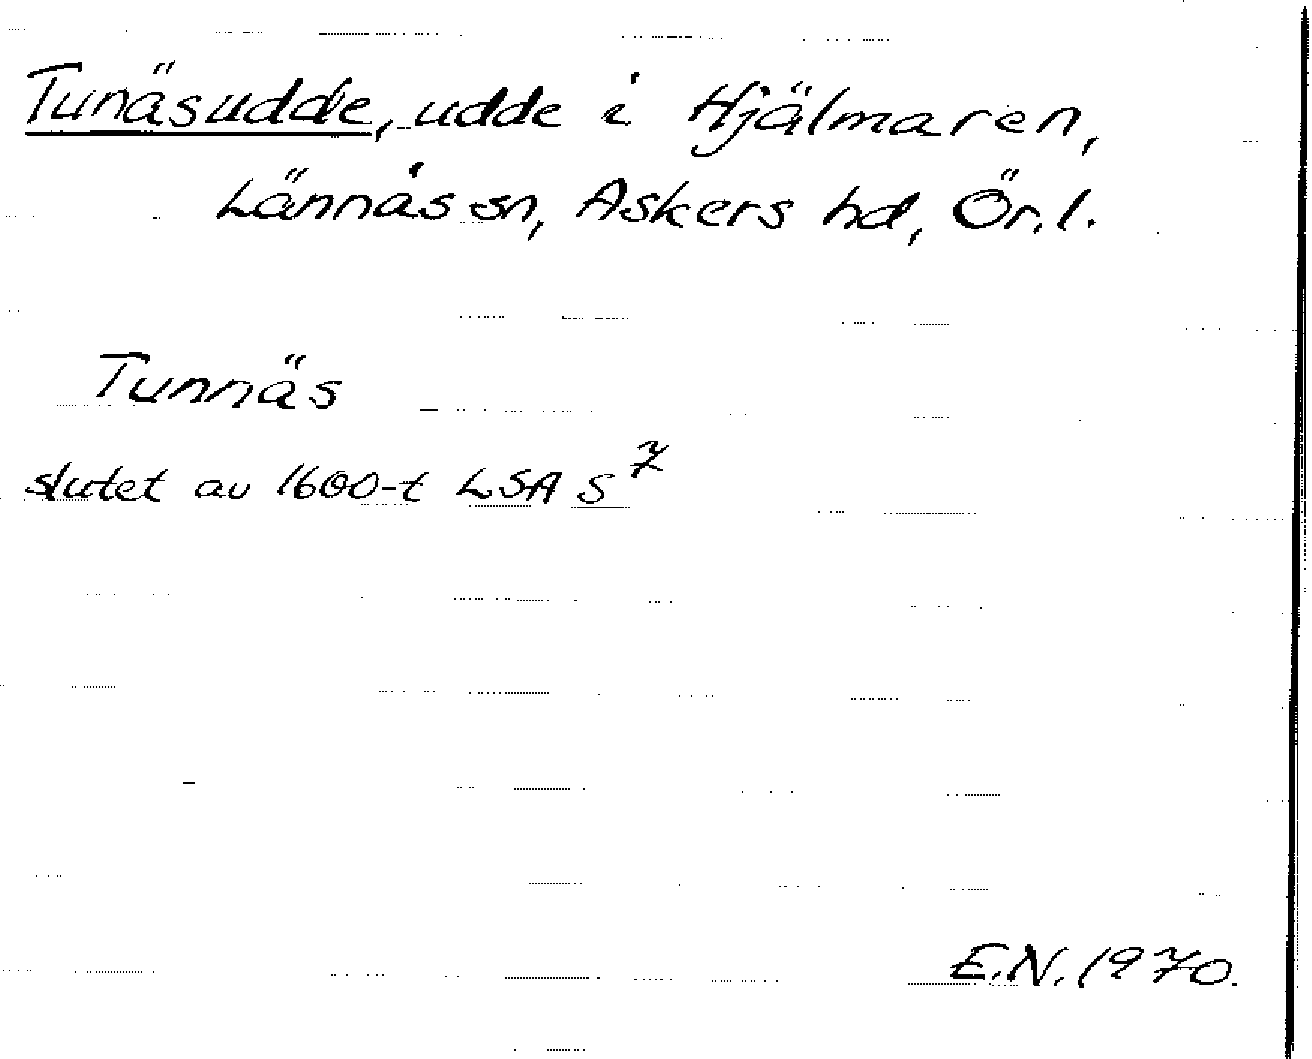 Tunäsudde, udde i Hjälmaren,
Lännäs sn, Askers hd, Ör.l.
Tunnäs
slutet av 1600-t LSA S 7
E.N. 1970.